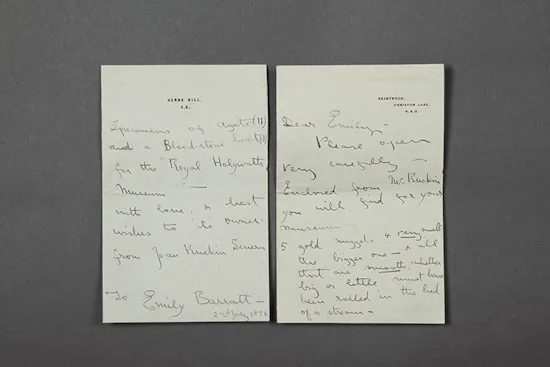 HERNE HILL,
S.E.
Specimens of agate (11)
and a Bloodstone heart (1)
for the "Royal Holywath
Museum"—
with love, & best
wishes to its owner-
from Joan Ruskin Severn
To Emily Barratt—
2nd July 1896
BRANTWOOD,
CONISTON LAKE,
Dear Emily,-
Please open
very carefully—
Enclosed from Mr. Ruskin
you will find for your
museum
5 gold nuggets 4 very small
the bigger one— & all
that are smooth, whether
big or little must have
been rolled in the bed
of a stream—